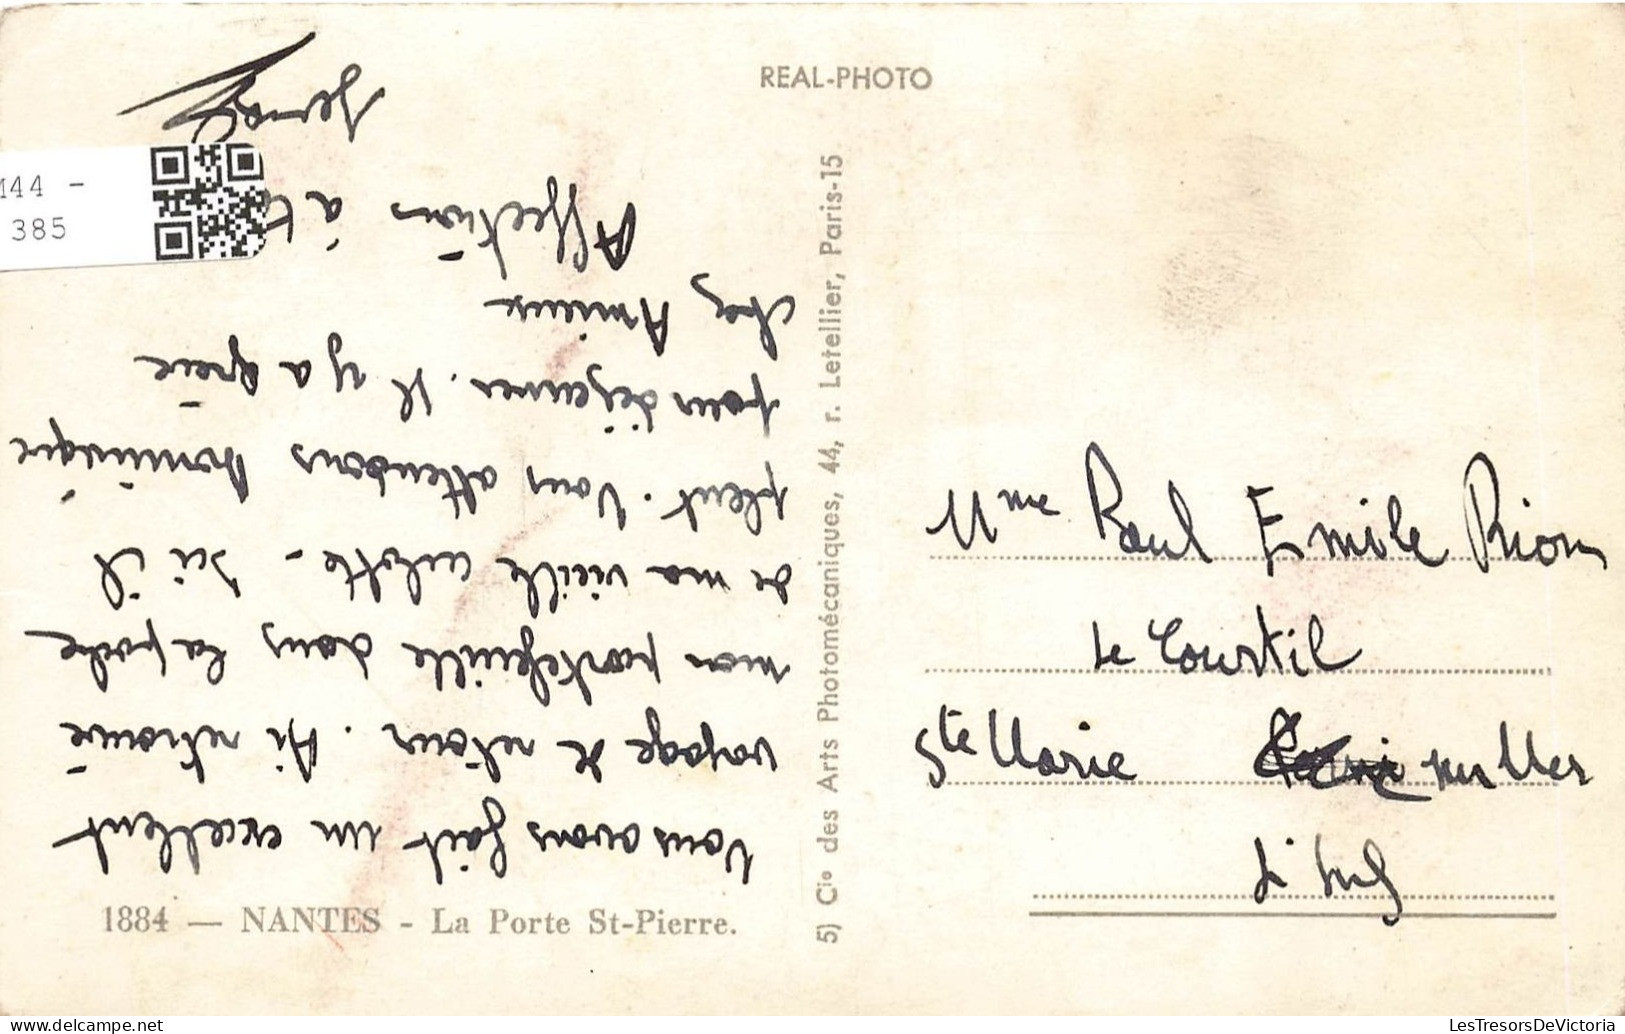 REAL-PHOTO
M44 -
385
Nous avons fait un excellent
voyage de retour. Ai retrouvé
mon portefeuille dans la poche
de ma vieille culotte - Ici il
pleut. Nous attendons Dominique
pour déjeuner. Il y a grève
chez Amieux
Affections à
1884 — NANTES - La Porte St-Pierre.
5) Cie des Arts Photomécaniques, 44, r. Letellier, Paris-15
Mme Paul Emile Rion
Le Courtil
Ste Marie sur Mer
L. Inf
LesTresorsDeVictoria
LesTresorsDeVictoria